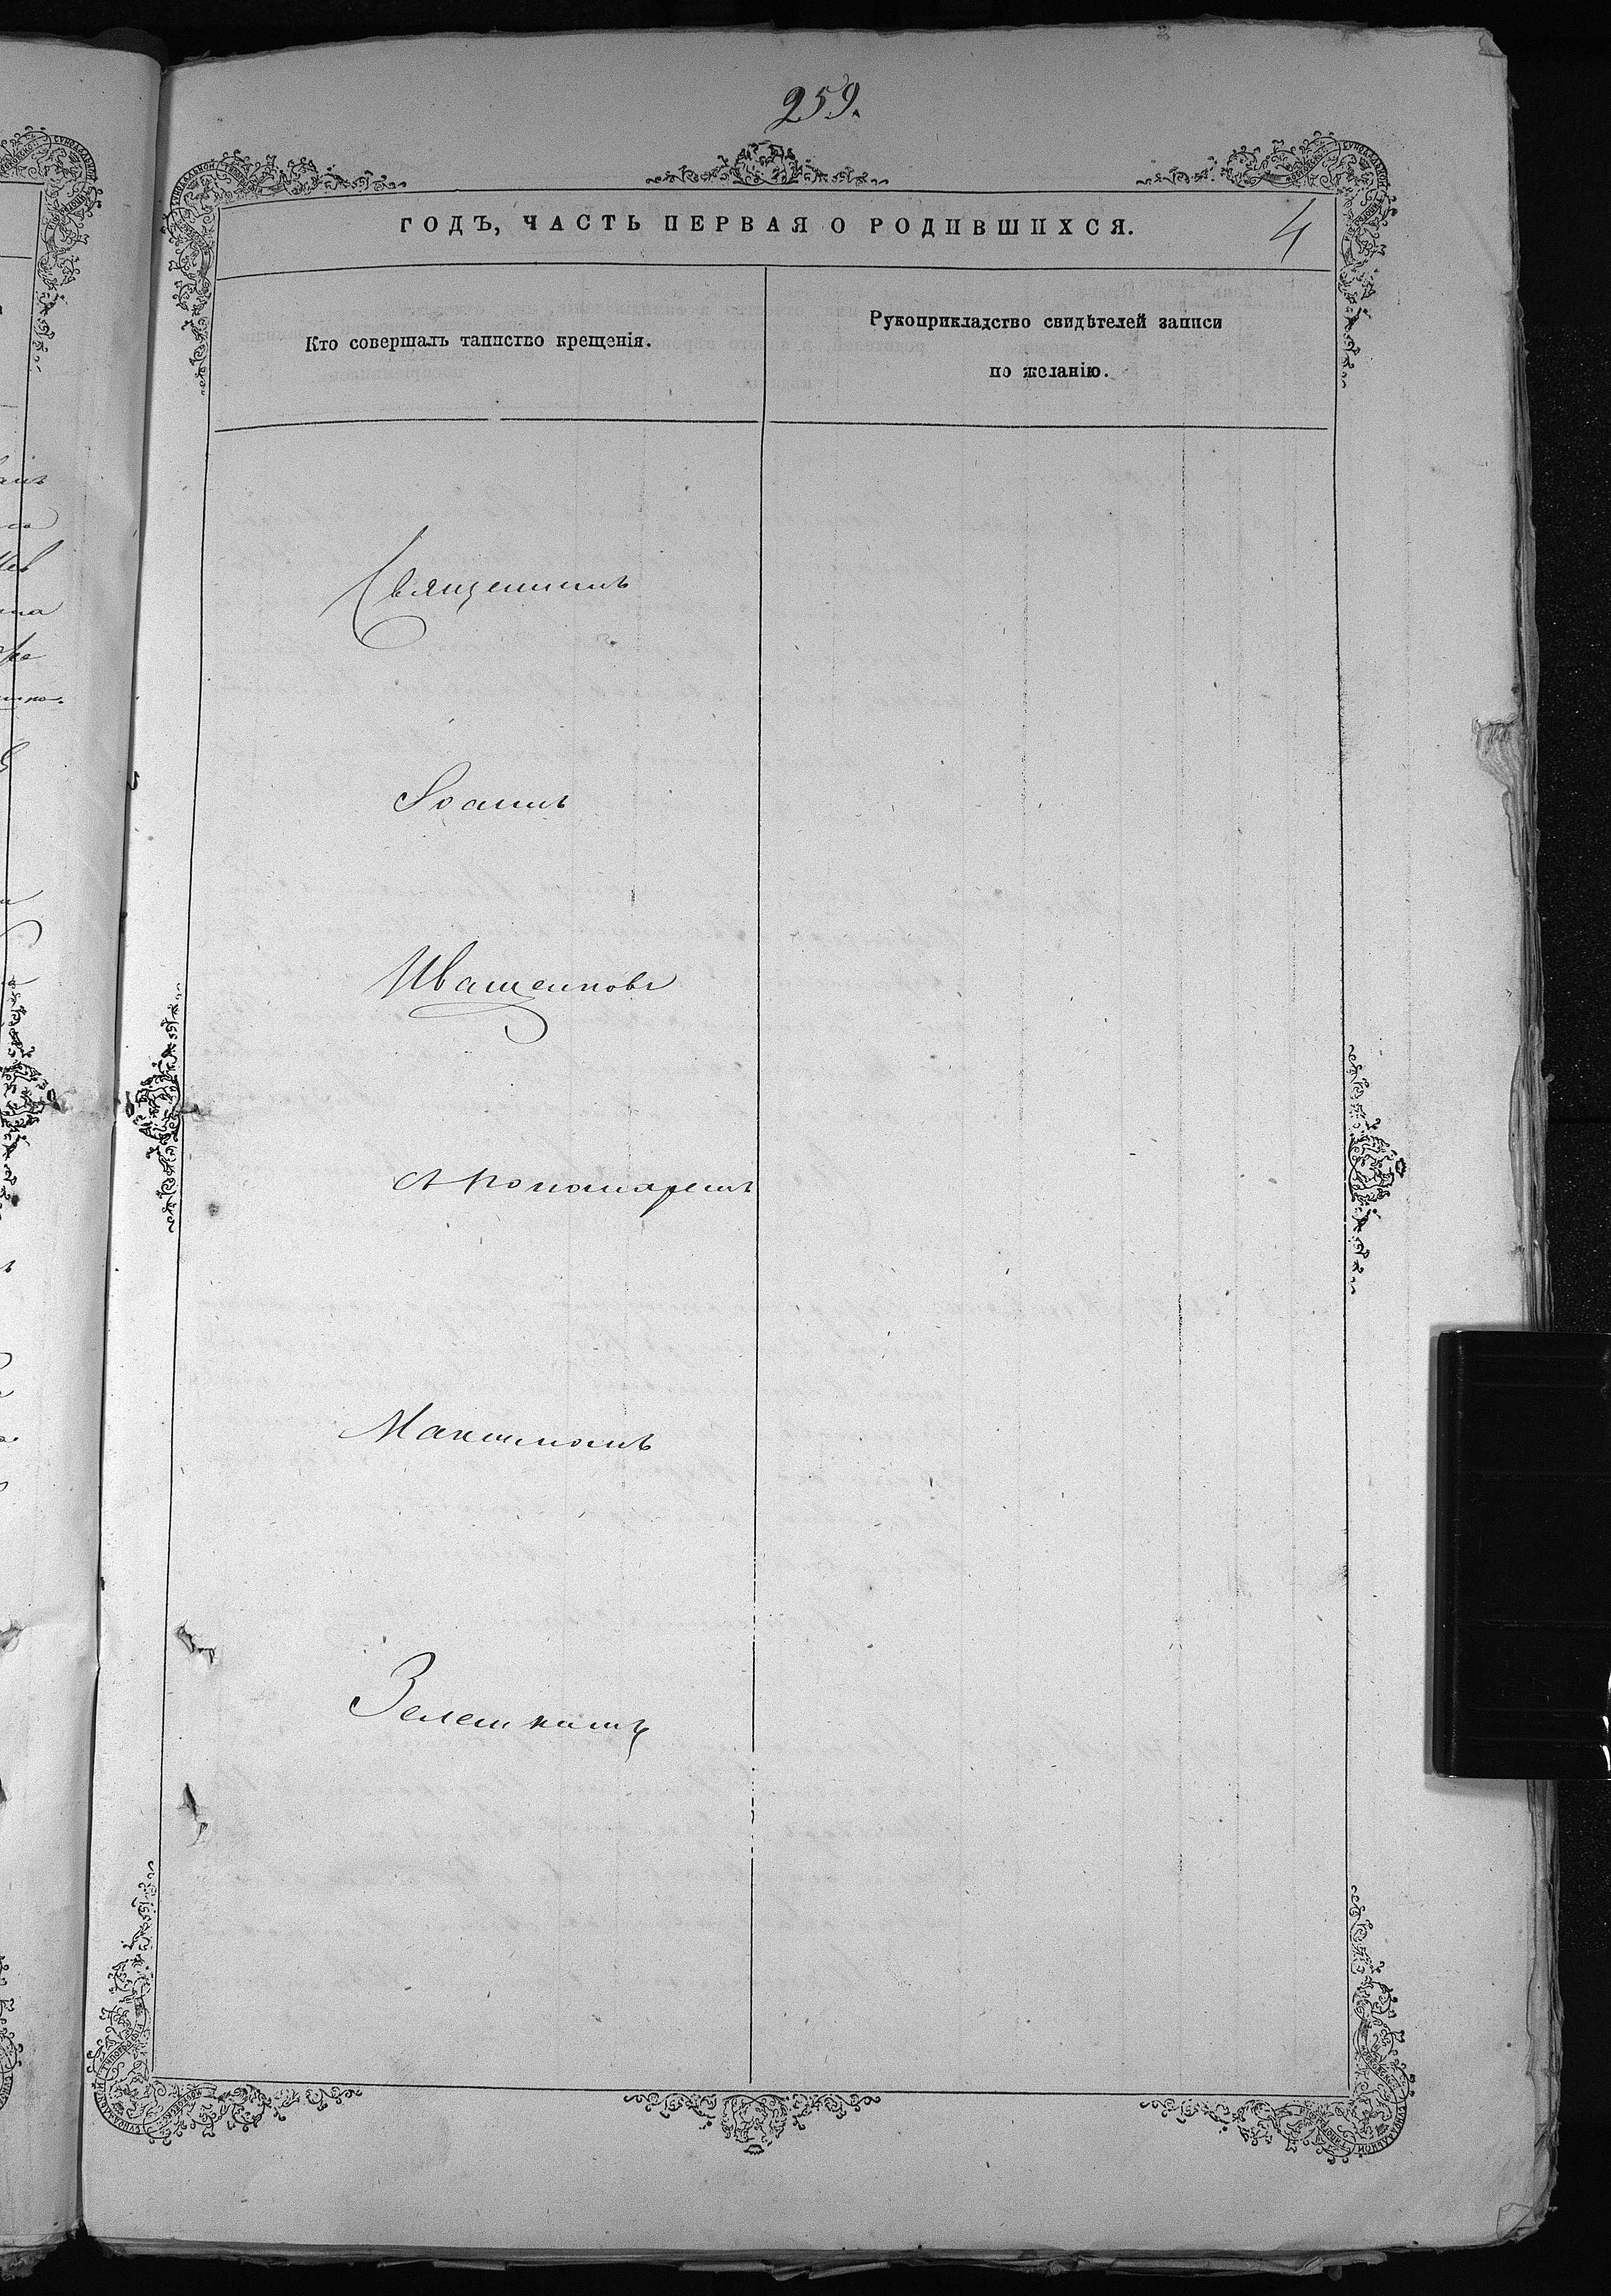 259.
ГОДЪ, ЧАСТЬ ПЕРВАЯ О РОДИВШИХСЯ.
4
Кто совершалъ таинство крещенія.
Рукоприкладство свидѣтелей записи
по желанію.
Священникъ
Іоаннъ
Иващенковъ
съ пономаремъ
Максимомъ